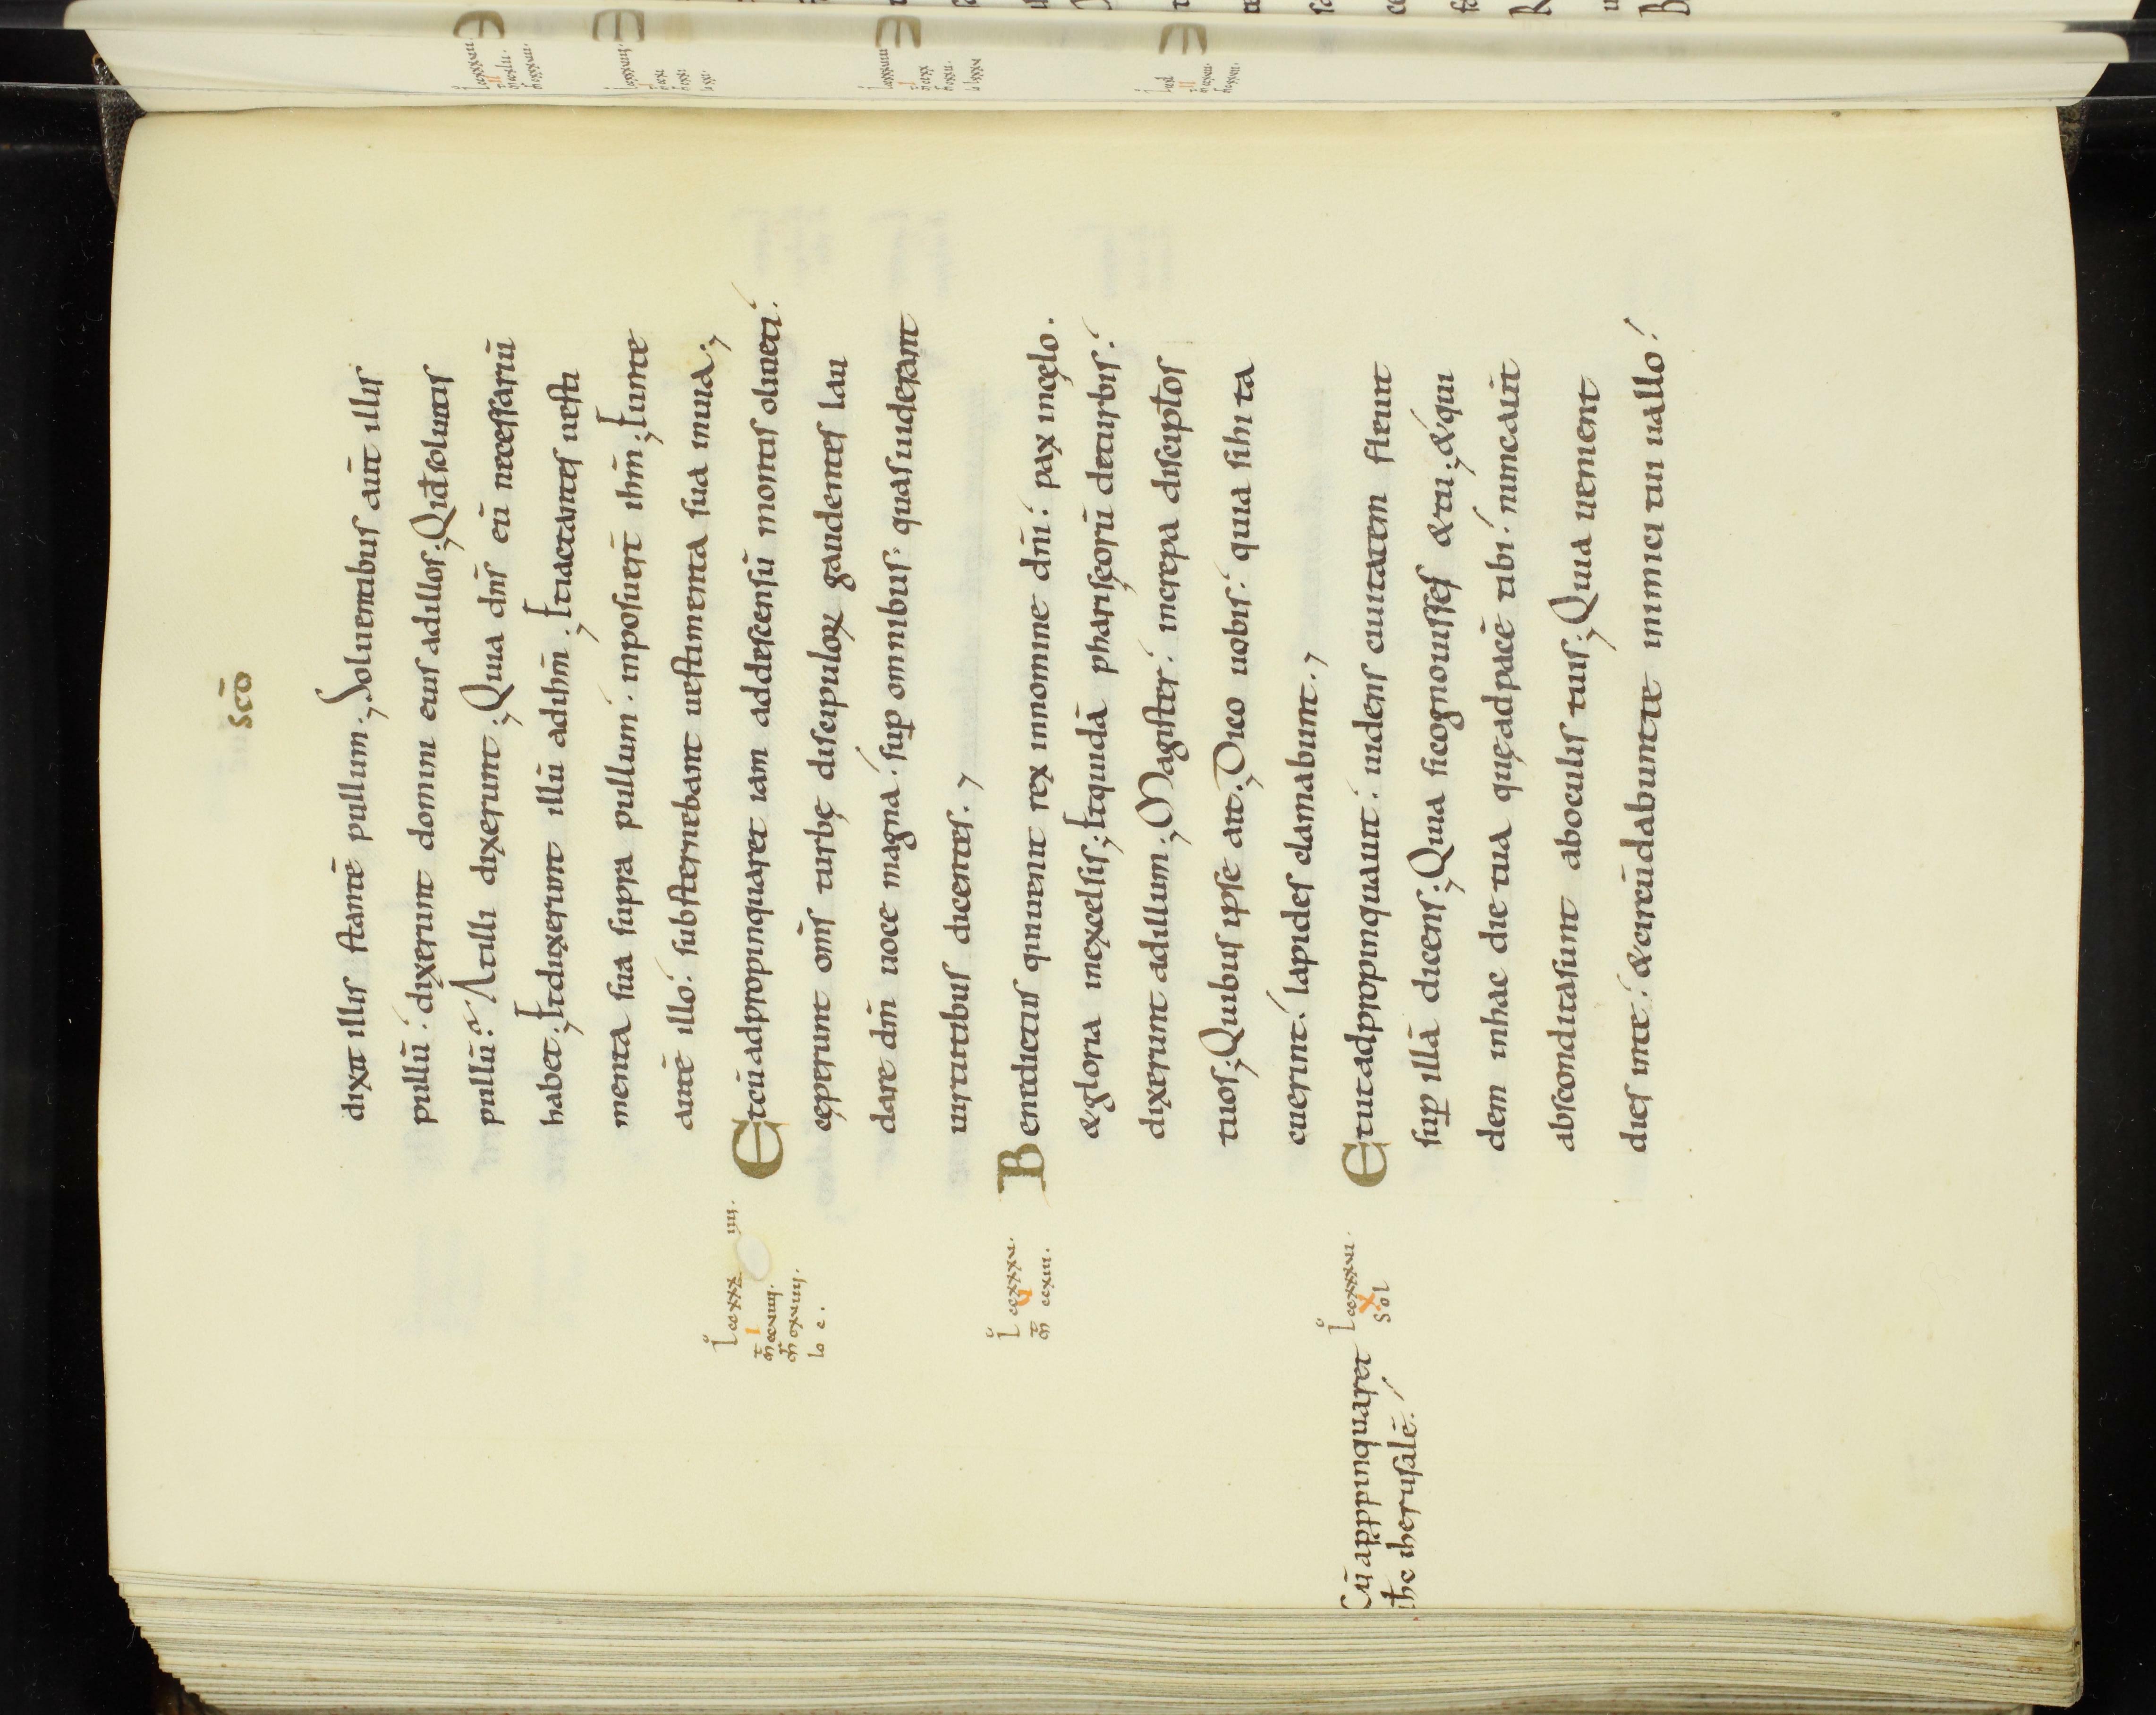 scō
dixit illis stantē pullum; Soluentibus aūt illis
pullū; dixerunt domini eius adillos; Quid soluitis
pullū? At illi dixerunt; Quia dn̄s eū necessariū
habet; Et duxerunt illū ad ihm̄; Et iactantes uesti
menta sua supra pullum. inposuer̄t ihm̄; Eunte
autē illo. substernebant uestimenta sua inuia;
Et cū adpropinquaret iam addescensū montis oliueti.
cęperunt om̄s turbę discipuloꝝ gaudentes lau
dare dm̄ uoce magna. suꝑ omnibus quas uiderant
uirtutibus dicentes.
Benedictus qui uenit rex innomine dn̄i. pax incęlo.
& gloria inexcelsis; Et quidā phariseorū deturbis.
dixerunt adillum; Magister. increpa discip̄tos
tuos; Quibus ipse ait; Dico uobis. quia si hi ta
cuerint. lapides clamabunt.
Et ut adpropinquauit. uidens ciuitatem fleuit
suꝑ illā dicens; Quia si cognouisses & tu; & qui
dem inhac die tua quę adpacē tibi. nunc aūt
abscondita sunt aboculis tuis; Quia uenient
dies inte. & circūdabunt te inimici tui uallo.
Cū apppinquaret
ihc iherusalē.
X
Sol